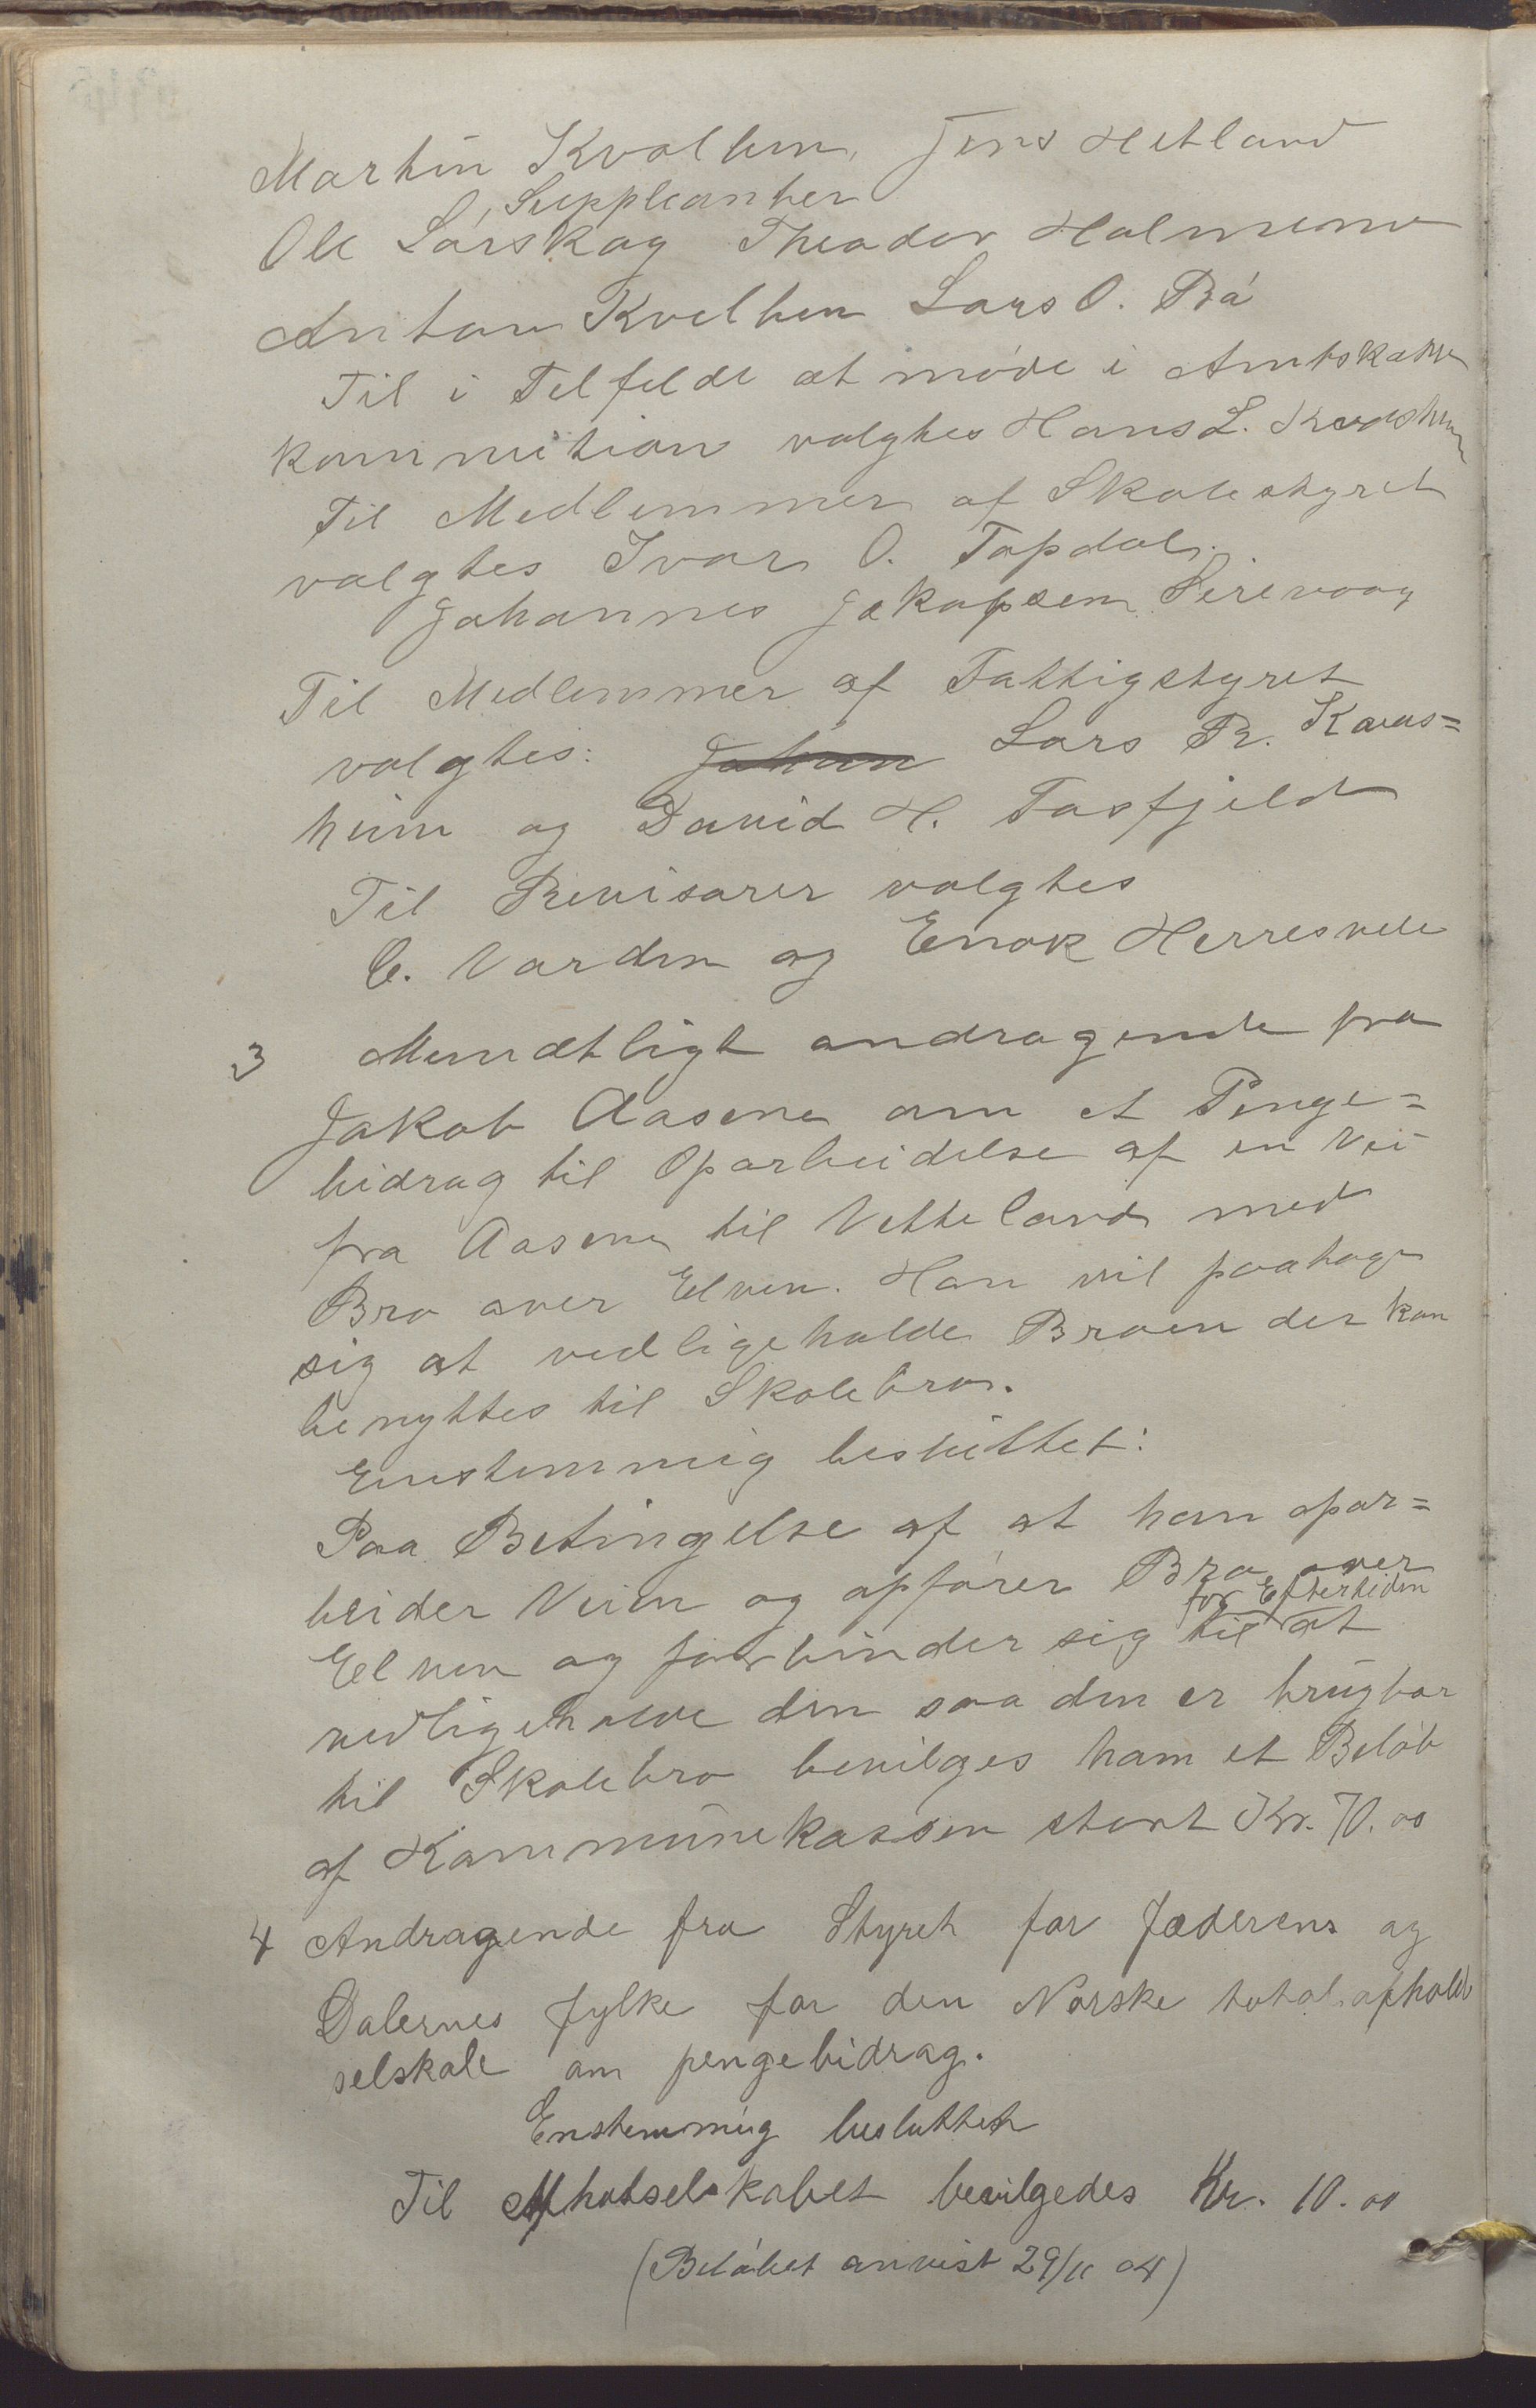 Martin Kvalben, Jens Hetland
Suppleanter
Ole Lórskog Theodor Holmene
Anton Kvelben Lars O. Rá
Til i Telfelde at móde i Amtskatte
kommition valgtes Hans L.
Til Medlemmer af Skolestyret
valgtes Ivar O. Tapdal.
Johannes Jakopsen Sirevaag
Til Medlemmer af Fattigstyret
valgtes: Johan Lars R. Karas=
heim og David H. Tosfjeld
Til Revisorer valgtes
C. Varden og Enok Herresvele
3 Mundtligt andragende fra
Jakob Aasene om et Penge=
bidrag til Oparbeidelse af en Vei
fra Aasene til Vetteland med
Bro over Elven. Han vil paatage
sig at vedligeholde Broen der kan
benyttes til Skolebro.
Enstemmig besluttet:
Paa Betingelse af at han opar=
beider Veien og opfórer Bro over
for Eftertiden
Elven og forbinder sig til at
vedligeholde den saa den er brugbar
til Skolebro bevilges ham et Belób
af Kommunekassen stort Kr. 70.00
4 Andragende fra Styret for Jæderens og
Dalernes fylke for den Norske total afholds
selskab om pengebidrag.
Enstemmig besluttet
Til Afholselskabet bevilgedes Kr. 10.00
(Belóbet anvist 29/11 04)